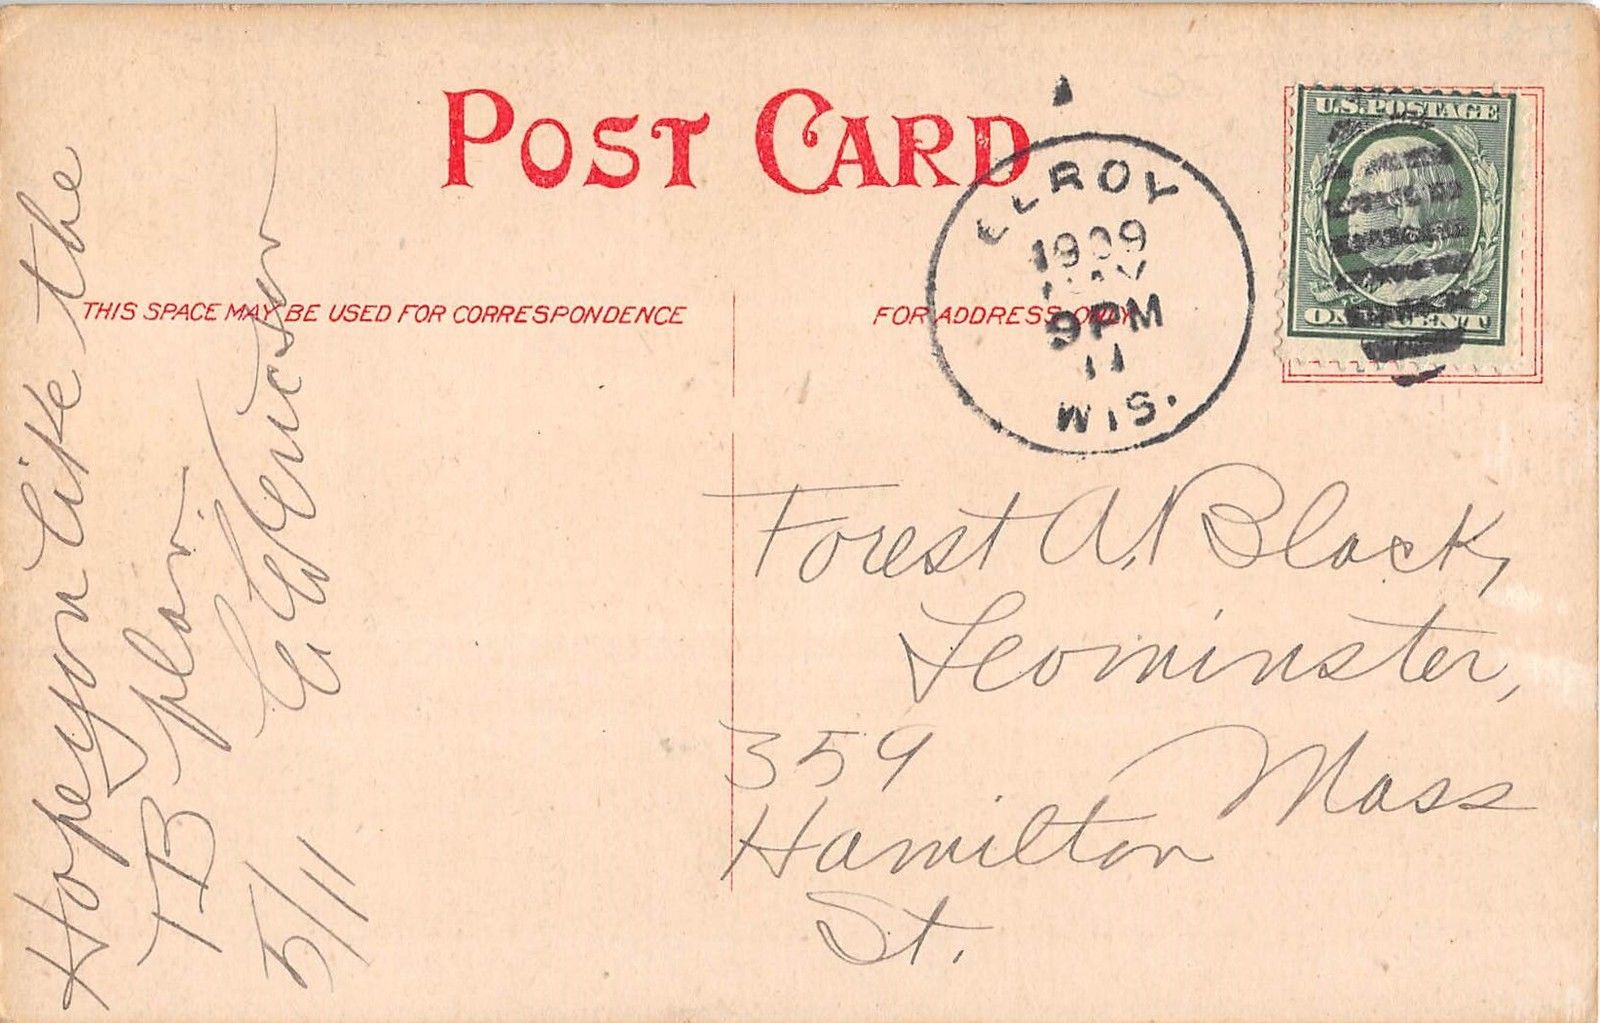 POST CARD
THIS SPACE MAY BE USED FOR CORRESPONDENCE
FOR ADDRESS ONLY
ELROY
1909
MAY
9 PM
11
WIS.
U.S. POSTAGE
ONE CENT
Hope you like the
TB plan.
5/11
Forest A. Black,
Leominster,
Mass
359
Hamilton
St.